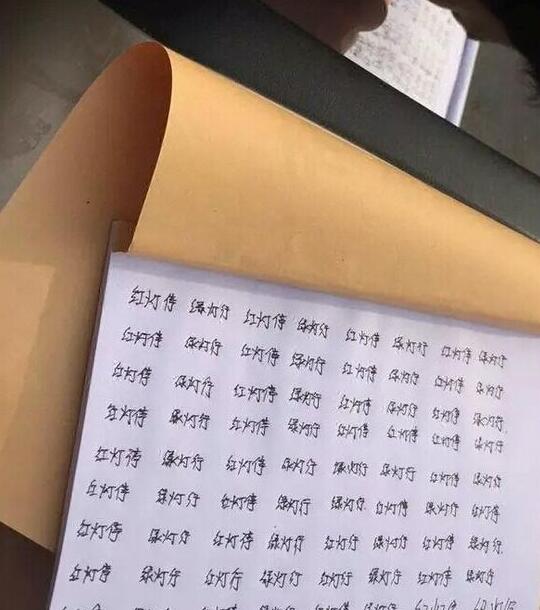 红灯停 绿灯行 红灯停 绿灯行 红灯停 绿灯行 红灯停 绿灯行
红灯停 绿灯行 红灯停 绿灯行 红灯停 绿灯行 红灯停 绿灯行
红灯停 绿灯行 红灯停 绿灯行 红灯停 绿灯行 红灯停 绿灯行
红灯停 绿灯行 红灯停 绿灯行 红灯停 红灯停 红灯停 绿灯行
红灯停 绿灯行 红灯停 绿灯行 绿灯行 绿灯行 红灯停 绿灯行
红灯停 绿灯行 红灯停 绿灯行 绿灯行 红灯停 绿灯行 红灯停
红灯停 绿灯行 红灯停 绿灯行 红灯行 绿灯行 红灯停 绿灯行
红灯停 绿灯行 红灯行 绿灯行 红灯行 绿灯行 红灯停 绿灯行